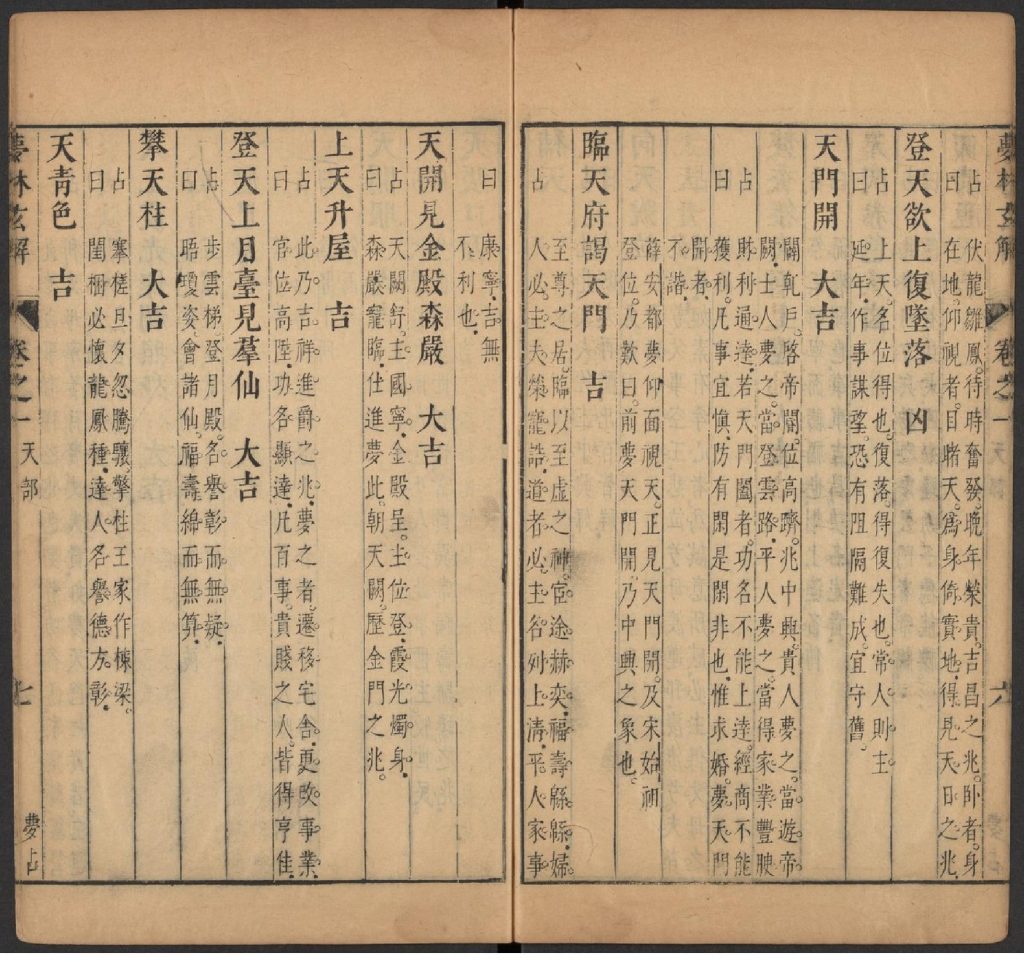 夢林玄解 卷之一 天部 六 夢占
占伏龍雛鳳待時奮發晚年榮貴吉昌之兆臥者身
曰在地仰視者目睹天爲身倚實地得見天日之兆
登天欲上復墜落 凶
占上天名位得也復落得復失也常人則主
曰延年作事謀望恐有阻隔難成宜守舊
天門開 大吉
闢乾戶啓帝閽位高躋兆中興貴人夢之當遊帝
闕士人夢之當登雲路平人夢之當得家業豐腴
占財利通達若天門闔者功名不能上達經商不能
曰獲利凡事宜慎防有閑是閑非也惟求婚夢天門
開者
不諧
薛安都夢仰面視天正見天門開及宋始祖
登位乃歎曰前夢天門開乃中興之象也
臨天府謁天門 吉
至尊之居臨以至虛之神宦途赫奕福壽緜緜婦
占人必主夫榮寵誥道者必主名列上清平人家事
曰康寧吉無
不利也
天開見金殿森嚴 大吉
占天闕舒主國寧金殿呈主位登霞光燭身
曰森嚴寵臨仕進夢此朝天闕歷金門之兆
上天升屋 吉
占此乃吉祥進爵之兆夢之者遷移宅舍更改事業
曰官位高陞功名顯達凡百事貴賤之人皆得亨佳
登天上月臺見羣仙 大吉
占步雲梯登月殿名譽彰而無疑
曰晤瓊姿會諸仙福壽綿而無算
攀天柱 大吉
占搴槎旦夕忽騰驤擎柱王家作棟梁
曰閨梱必懷龍鳳種達人名譽德方彰
天青色 吉
夢林玄解 卷之一 天部 七 夢占